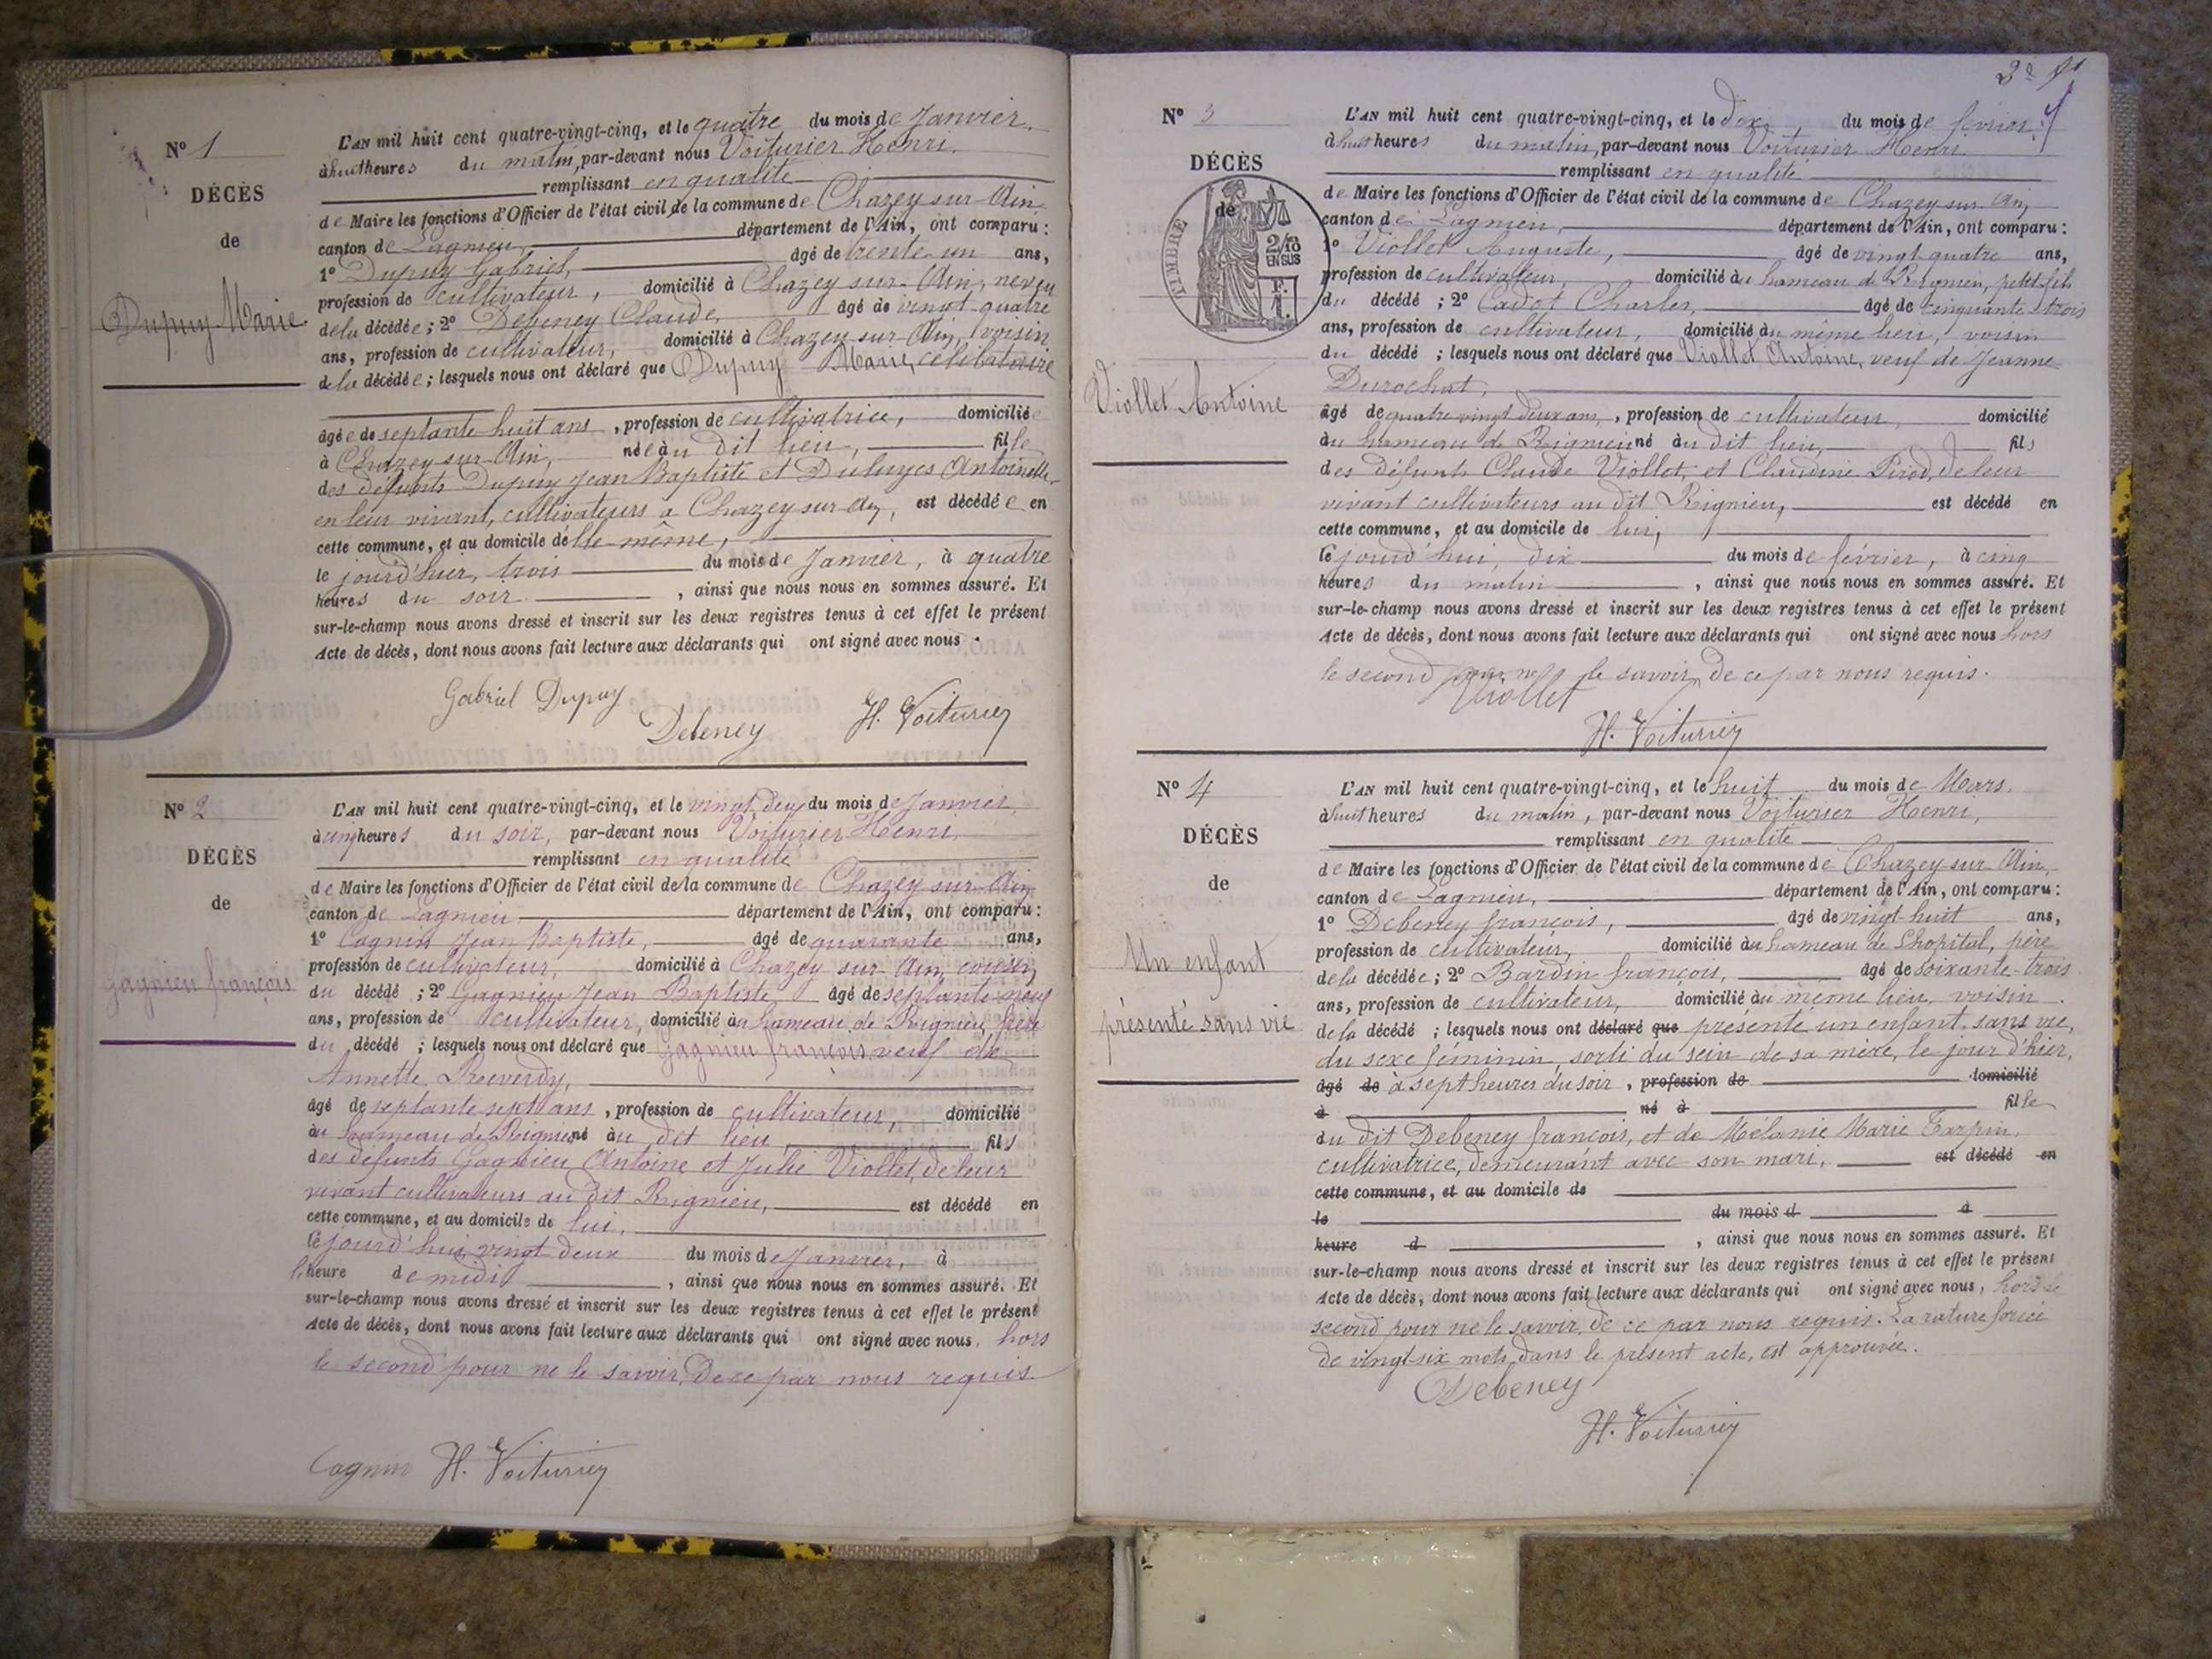 N° 1
DÉCÈS
de
Dupuy Marie
L'AN mil huit cent quatre-vingt-cinq, et le quatre du mois de Janvier.
à huit heures du matin, par-devant nous Voiturier Henri.
remplissant en qualité
de Maire les fonctions d'Officier de l'état civil de la commune de Chazey-sur-Ain
canton de Lagnieu, département de l'Ain, ont comparu :
1° Dupuy Gabriel, âgé de trente un ans,
profession de cultivateur, domicilié à Chazey-sur-Ain, neveu
de la décédée ; 2° Debeney Claude, âgé de vingt-quatre
ans, profession de cultivateur, domicilié à Chazey-sur-Ain, voisin
de la décédée ; lesquels nous ont déclaré que Dupuy Marie, célibataire
âgée de septante huit ans, profession de cultivatrice, domiciliée
à Chazey-sur-Ain, née au dit lieu, fille
des défunts Dupuy Jean Baptiste et Antoinette,
en leur vivant, cultivateurs à Chazey sur Ain, est décédée en
cette commune, et au domicile d'elle-même,
le jourd'hier, trois du mois de Janvier, à quatre
heures du soir, ainsi que nous nous en sommes assuré. Et
sur-le-champ nous avons dressé et inscrit sur les deux registres tenus à cet effet le présent
Acte de décès, dont nous avons fait lecture aux déclarants qui ont signé avec nous.
Gabriel Dupuy
Debeney H. Voiturier
N° 2
DÉCÈS
de
Gagnieu françois
L'AN mil huit cent quatre-vingt-cinq, et le vingt deux du mois de Janvier,
à cinq heures du soir, par-devant nous Voiturier Henri.
remplissant en qualité
de Maire les fonctions d'Officier de l'état civil de la commune de Chazey sur Ain
canton de Lagnieu département de l'Ain, ont comparu :
1° Cagnin Jean Baptiste, âgé de quarante ans,
profession de cultivateur, domicilié à Chazey sur Ain, cousin
du décédé ; 2° Gagnieu Jean Baptiste âgé de septante neuf
ans, profession de cultivateur, domicilié au hameau de Rignieu, frère
du décédé ; lesquels nous ont déclaré que Gagnieu françois veuf de
Annette Reverdy,
âgé de septante sept ans, profession de cultivateur, domicilié
au hameau de Rignieu né au dit lieu fils
des défunts Gagnieu Antoine et Julie Viollet, de leur
vivant cultivateurs au dit Rignieu, est décédé en
cette commune, et au domicile de lui,
le jourd'hui vingt deux du mois de Janvier, à
l'heure de midi, ainsi que nous nous en sommes assuré. Et
sur-le-champ nous avons dressé et inscrit sur les deux registres tenus à cet effet le présent
Acte de décès, dont nous avons fait lecture aux déclarants qui ont signé avec nous, hors
le second pour ne le savoir, de ce par nous requis.
Cagnin H. Voiturier
N° 3
DÉCÈS
de
TIMBRE
2/10 EN SUS
Viollet Antoine
L'AN mil huit cent quatre-vingt-cinq, et le dix du mois de février.
à huit heures du matin, par-devant nous Voiturier Henri
remplissant en qualité
de Maire les fonctions d'Officier de l'état civil de la commune de Chazey sur Ain,
canton de Lagnieu, département de l'Ain, ont comparu :
1° Viollet Auguste, âgé de vingt quatre ans,
profession de cultivateur, domicilié au hameau de Rignieu, petit-fils
du décédé ; 2° Cadot Charles, âgé de cinquante-trois
ans, profession de cultivateur, domicilié au même lieu, voisin
du décédé ; lesquels nous ont déclaré que Viollet Antoine, veuf de Jeanne
Durochat,
âgé de quatre vingt deux ans, profession de cultivateur, domicilié
au hameau de Rignieu né au dit lieu, fils
des défunts Claude Viollet, et Claudine Pirod, de leur
vivant cultivateurs au dit Rignieu, est décédé en
cette commune, et au domicile de lui,
le jourd'hui, dix du mois de février, à cinq
heures du matin, ainsi que nous nous en sommes assuré. Et
sur-le-champ nous avons dressé et inscrit sur les deux registres tenus à cet effet le présent
Acte de décès, dont nous avons fait lecture aux déclarants qui ont signé avec nous hors
le second pour ne le savoir, de ce par nous requis.
Viollet
H. Voiturier
N° 4
DÉCÈS
de
Un enfant
présenté sans vie
L'AN mil huit cent quatre-vingt-cinq, et le huit du mois de Mars.
à huit heures du matin, par-devant nous Voiturier Henri,
remplissant en qualité
de Maire les fonctions d'Officier de l'état civil de la commune de Chazey sur Ain,
canton de Lagnieu, département de l'Ain, ont comparu :
1° Debeney françois, âgé de vingt-huit ans,
profession de cultivateur, domicilié au hameau de Lhopital, père
de la décédée ; 2° Bardin françois, âgé de soixante-trois
ans, profession de cultivateur, domicilié au même lieu, voisin
de la décédé ; lesquels nous ont déclaré que présenté un enfant sans vie,
du sexe féminin, sorti du sein de sa mère, le jour d'hier,
âgé de à sept heures du soir, profession de domicilié
à né à fille
du dit Debeney françois, et de Mélanie Marie Tarpin,
cultivatrice, demeurant avec son mari, est décédé en
cette commune, et au domicile de
le du mois d à
heure d , ainsi que nous nous en sommes assuré. Et
sur-le-champ nous avons dressé et inscrit sur les deux registres tenus à cet effet le présent
Acte de décès, dont nous avons fait lecture aux déclarants qui ont signé avec nous, hors le
second pour ne le savoir, de ce par nous requis. La rature forcée
de vingt-six mots dans le présent acte, est approuvée.
Debeney
H. Voiturier